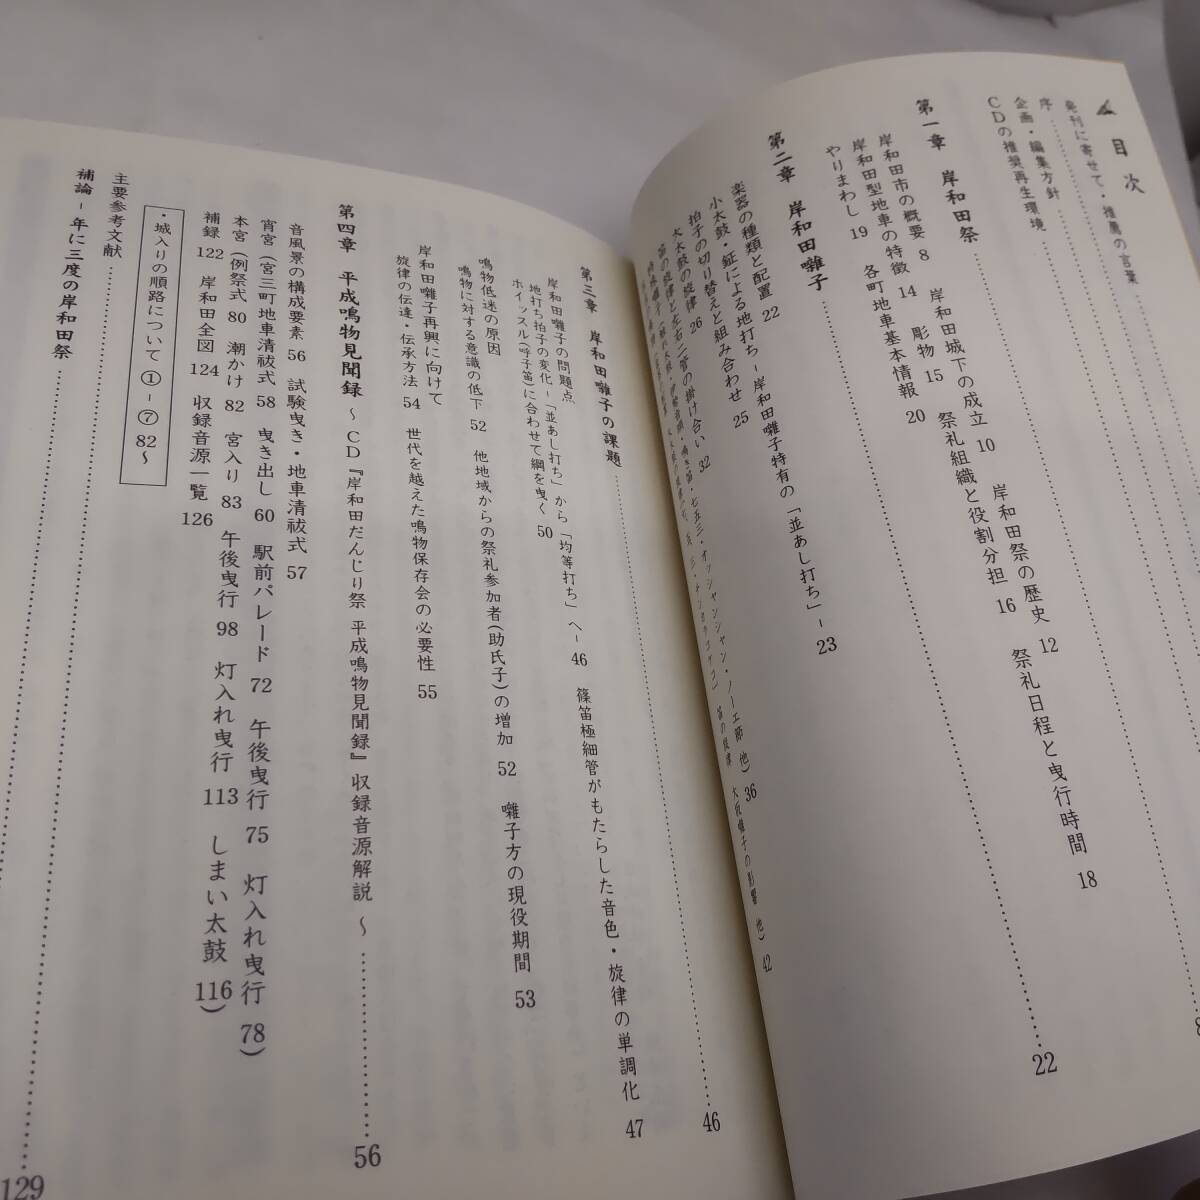 目次
発刊に寄せて・推薦の言葉
序
企画・編集方針
CDの推奨再生環境
第一章 岸和田祭 8
岸和田市の概要 8 岸和田城下の成立 10 岸和田祭の歴史 12
岸和田型地車の特徴 14 彫物 15 祭礼組織と役割分担 16 祭礼日程と曳行時間 18
やりまわし 19 各町地車基本情報 20
第二章 岸和田囃子 22
楽器の種類と配置 22
小太鼓・鉦による地打ち−岸和田囃子特有の「並あし打ち」− 23
拍子の切り替えと組み合わせ 25
大太鼓の旋律 26
笛の旋律と左右二管の掛け合い 32
第三章 岸和田囃子の課題 46
岸和田囃子の問題点
地打ち拍子の変化−「並あし打ち」から「均等打ち」へ− 46 篠笛極細管がもたらした音色・旋律の単調化 47
ホイッスル(呼子笛)に合わせて綱を曳く 50
鳴物低迷の原因
鳴物に対する意識の低下 52 他地域からの祭礼参加者(助氏子)の増加 52 囃子方の現役期間 53
岸和田囃子再興に向けて
旋律の伝達・伝承方法 54 世代を越えた鳴物保存会の必要性 55
第四章 平成鳴物見聞録 〜CD『岸和田だんじり祭 平成鳴物見聞録』収録音源解説〜 56
音風景の構成要素 56 試験曳き・地車清祓式 57
宵宮(宮三町地車清祓式 58 曳き出し 60 駅前パレード 72 午後曳行 75 灯入れ曳行 78)
本宮(例祭式 80 潮かけ 82 宮入り 83 午後曳行 98 灯入れ曳行 113 しまい太鼓 116)
補録 122 岸和田全図 124 収録音源一覧 126
・城入りの順路について ①−⑦ 82〜
主要参考文献
補論−年に三度の岸和田祭 129